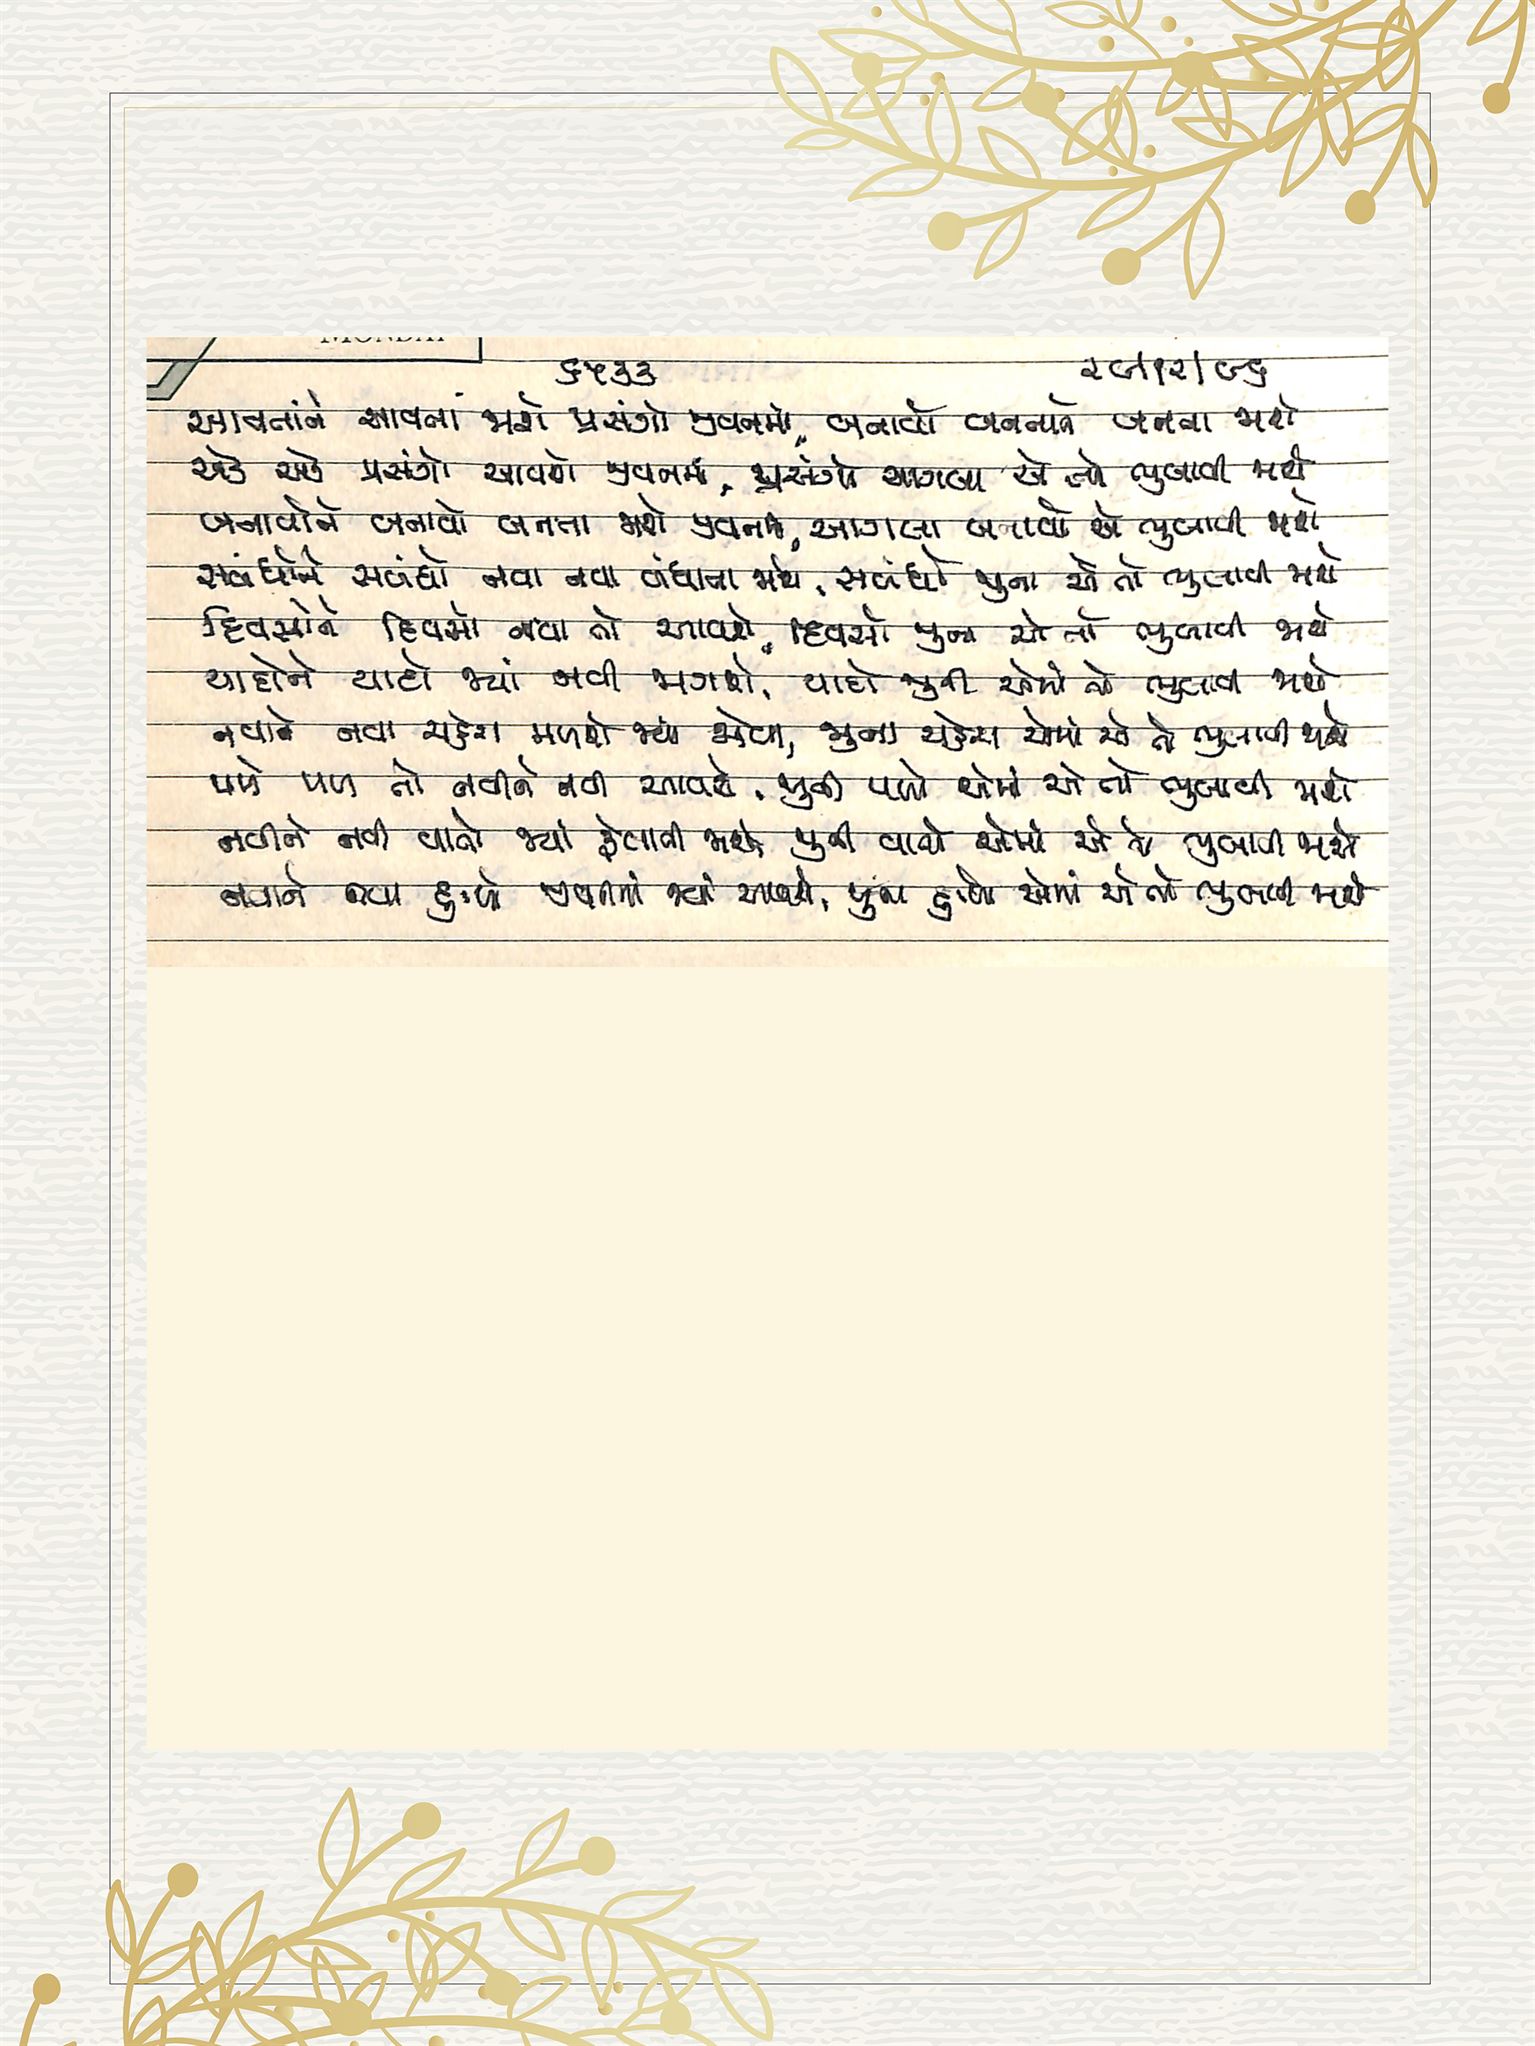 MONDAY
૬૫૩૩ ૨૯/૧૨/૯૬
આવતાંને આવતાં જાશે પ્રસંગો જીવનમાં, બનાવો બનતાને બનતા જાશે
એક એક પ્રસંગો આવશે જીવનમાં, પ્રસંગો આગલા એ તો ભુલાવી જાશે
બનાવોને બનાવો બનતા જાશે જીવનમાં, આગલા બનાવો એ ભુલાવી જાશે
સબંધોને સબંધો નવા નવા બંધાતા જાશે, સબંધો જુના એ તો ભુલાવી જાશે
દિવસોને દિવસો નવા તો આવશે, દિવસો જુના એ તો ભુલાવી જાશે
યાદોને યાદો જ્યાં નવી જાગશે, યાદો જુની એમાં તો ભુલાવી જાશે
નવાને નવા ચહેરા મળશે જ્યાં જોવા, જુના ચહેરા એમાં એ તો ભુલાવી જાશે
પળે પળ તો નવીને નવી આવશે, જુની પળો એમાં એ તો ભુલાવી જાશે
નવીને નવી વાતો જ્યાં ફેલાતી જાશે જુની વાતો એમાં એ તો ભુલાવી જાશે
નવાને નવા દુઃખો જીવનમાં જ્યાં આવશે, જુના દુઃખો એમાં એ તો ભુલાવી જાશે